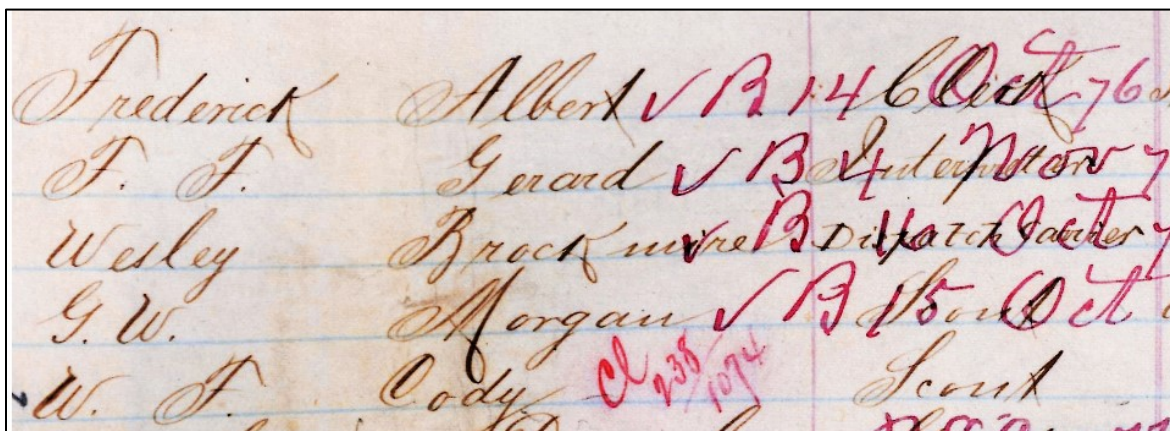 Frederick Albert ✓ B 14 Clerk Oct 76
F. F. Gerard ✓ B 4 Interpreter Nov 7
Wesley Brockmire ✓ B Dispatch Carrier Oct 7
G. W. Morgan ✓ B 15 Scout Oct
W. F. Cody Cl 238/1074 Scout